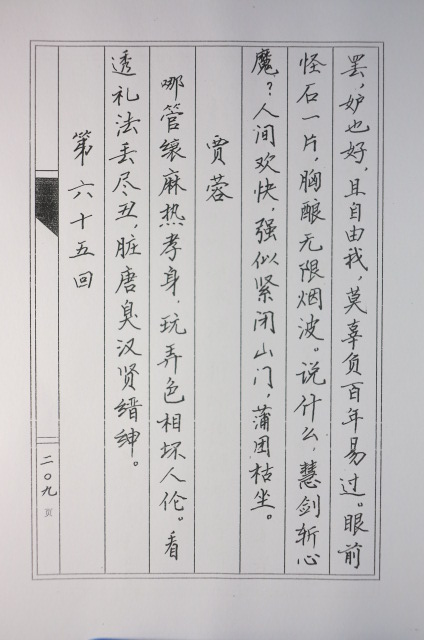 罢，妒也好，且自由我，莫辜负百年易过。眼前
怪石一片，胸酿无限烟波。说什么，慧剑斩心
魔？人间欢快，强似紧闭山门，蒲团枯坐。
贾蓉
哪管缞麻热孝身，玩弄色相坏人伦。看
透礼法丢尽丑，脏唐臭汉贤缙绅。
第六十五回
二〇九页